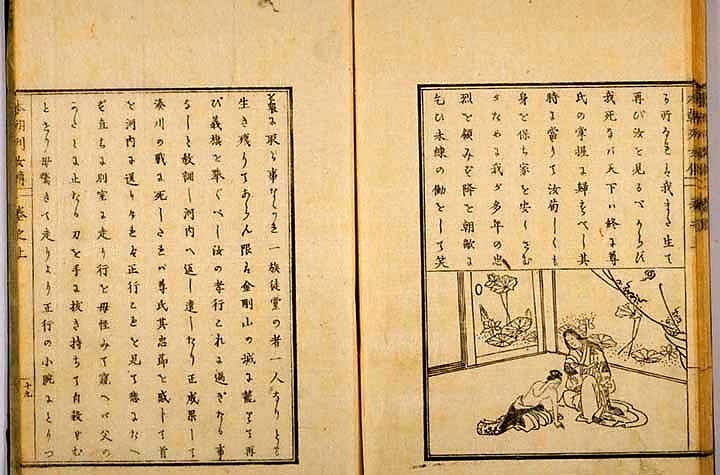 る所を我生て
再び汝を見るべからず
我死なバ天下ハ終に尊
氏の掌握に歸すべし其
時に當りて汝苟しくも
身を保ち家を安くせむ
ために我が多年の忠
烈を顧みず降を朝敵に
乞ひ未練の働をして笑
を取る事なかれ一族徒黨の者一人なりとも
生き残りてあらん限は金剛山の城に籠りて再
び義旗を擧ぐべし汝の孝行これに過ぎたる事
なしと教訓し河内へ返し遣したり正成果して
湊川の戦に死しさるが尊氏其忠節を感して首
を河内に送りけるを正行これを見て悲にたへ
ず立ちて別室に走り行を母怪みて窺へバ父の
かたみに止たる刀を手に抜き持ちて自殺せむ
とせり母驚きて走りより正行の小腕にとりつ
本朝列女傳 卷之上
十九